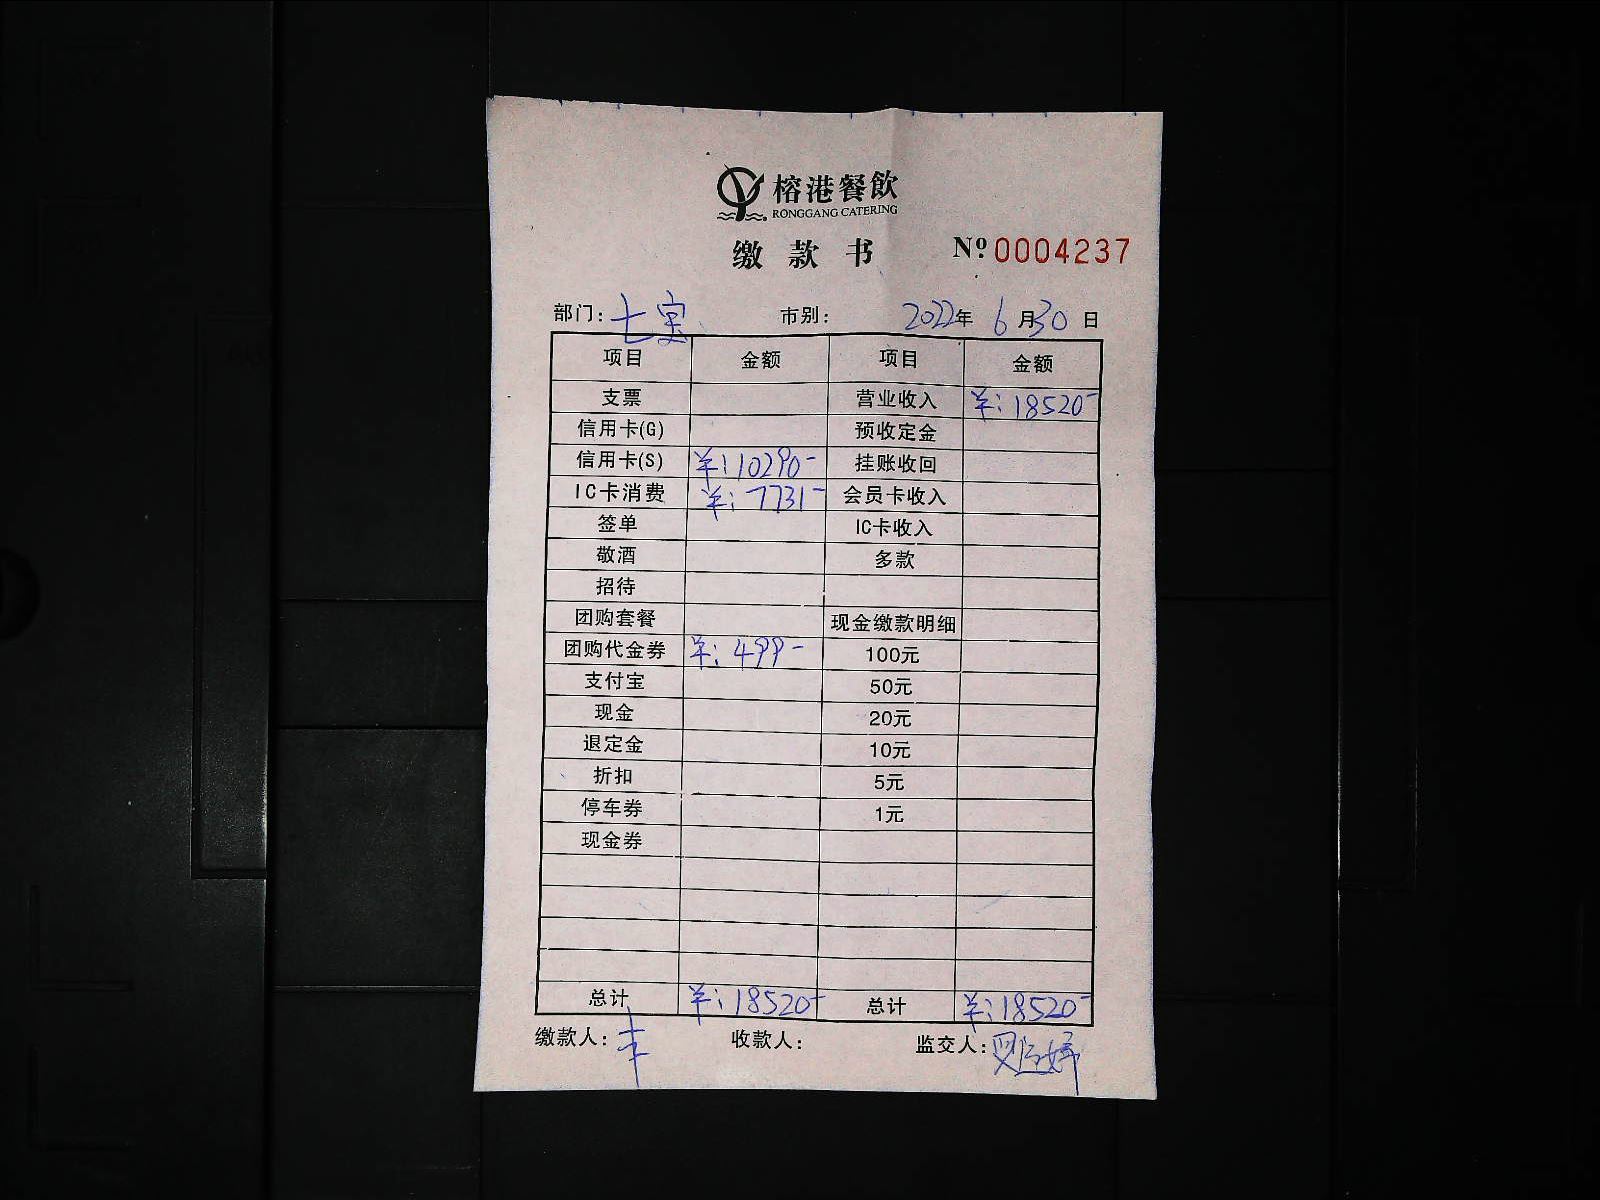 榕港餐飲
RONGGANG CATERING
缴款书 Nº 0004237
部门: 七宝 市别: 2022年 6月30日
项目 金额 项目 金额
支票 营业收入 ¥:18520-
信用卡(G) 预收定金
信用卡(S) ¥:10290- 挂账收回
IC卡消费 ¥:7731- 会员卡收入
签单 IC卡收入
敬酒 多款
招待
团购套餐 现金缴款明细
团购代金券 ¥:499- 100元
支付宝 50元
现金 20元
退定金 10元
折扣 5元
停车券 1元
现金券
总计 ¥:18520- 总计 ¥:18520-
缴款人: 丰 收款人: 监交人: